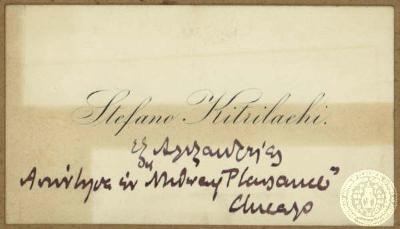 Stefano Kitrilachi.
ἐξ Ἀλεξανδρείας
ἐν "Midway Plaisance"
Chicago